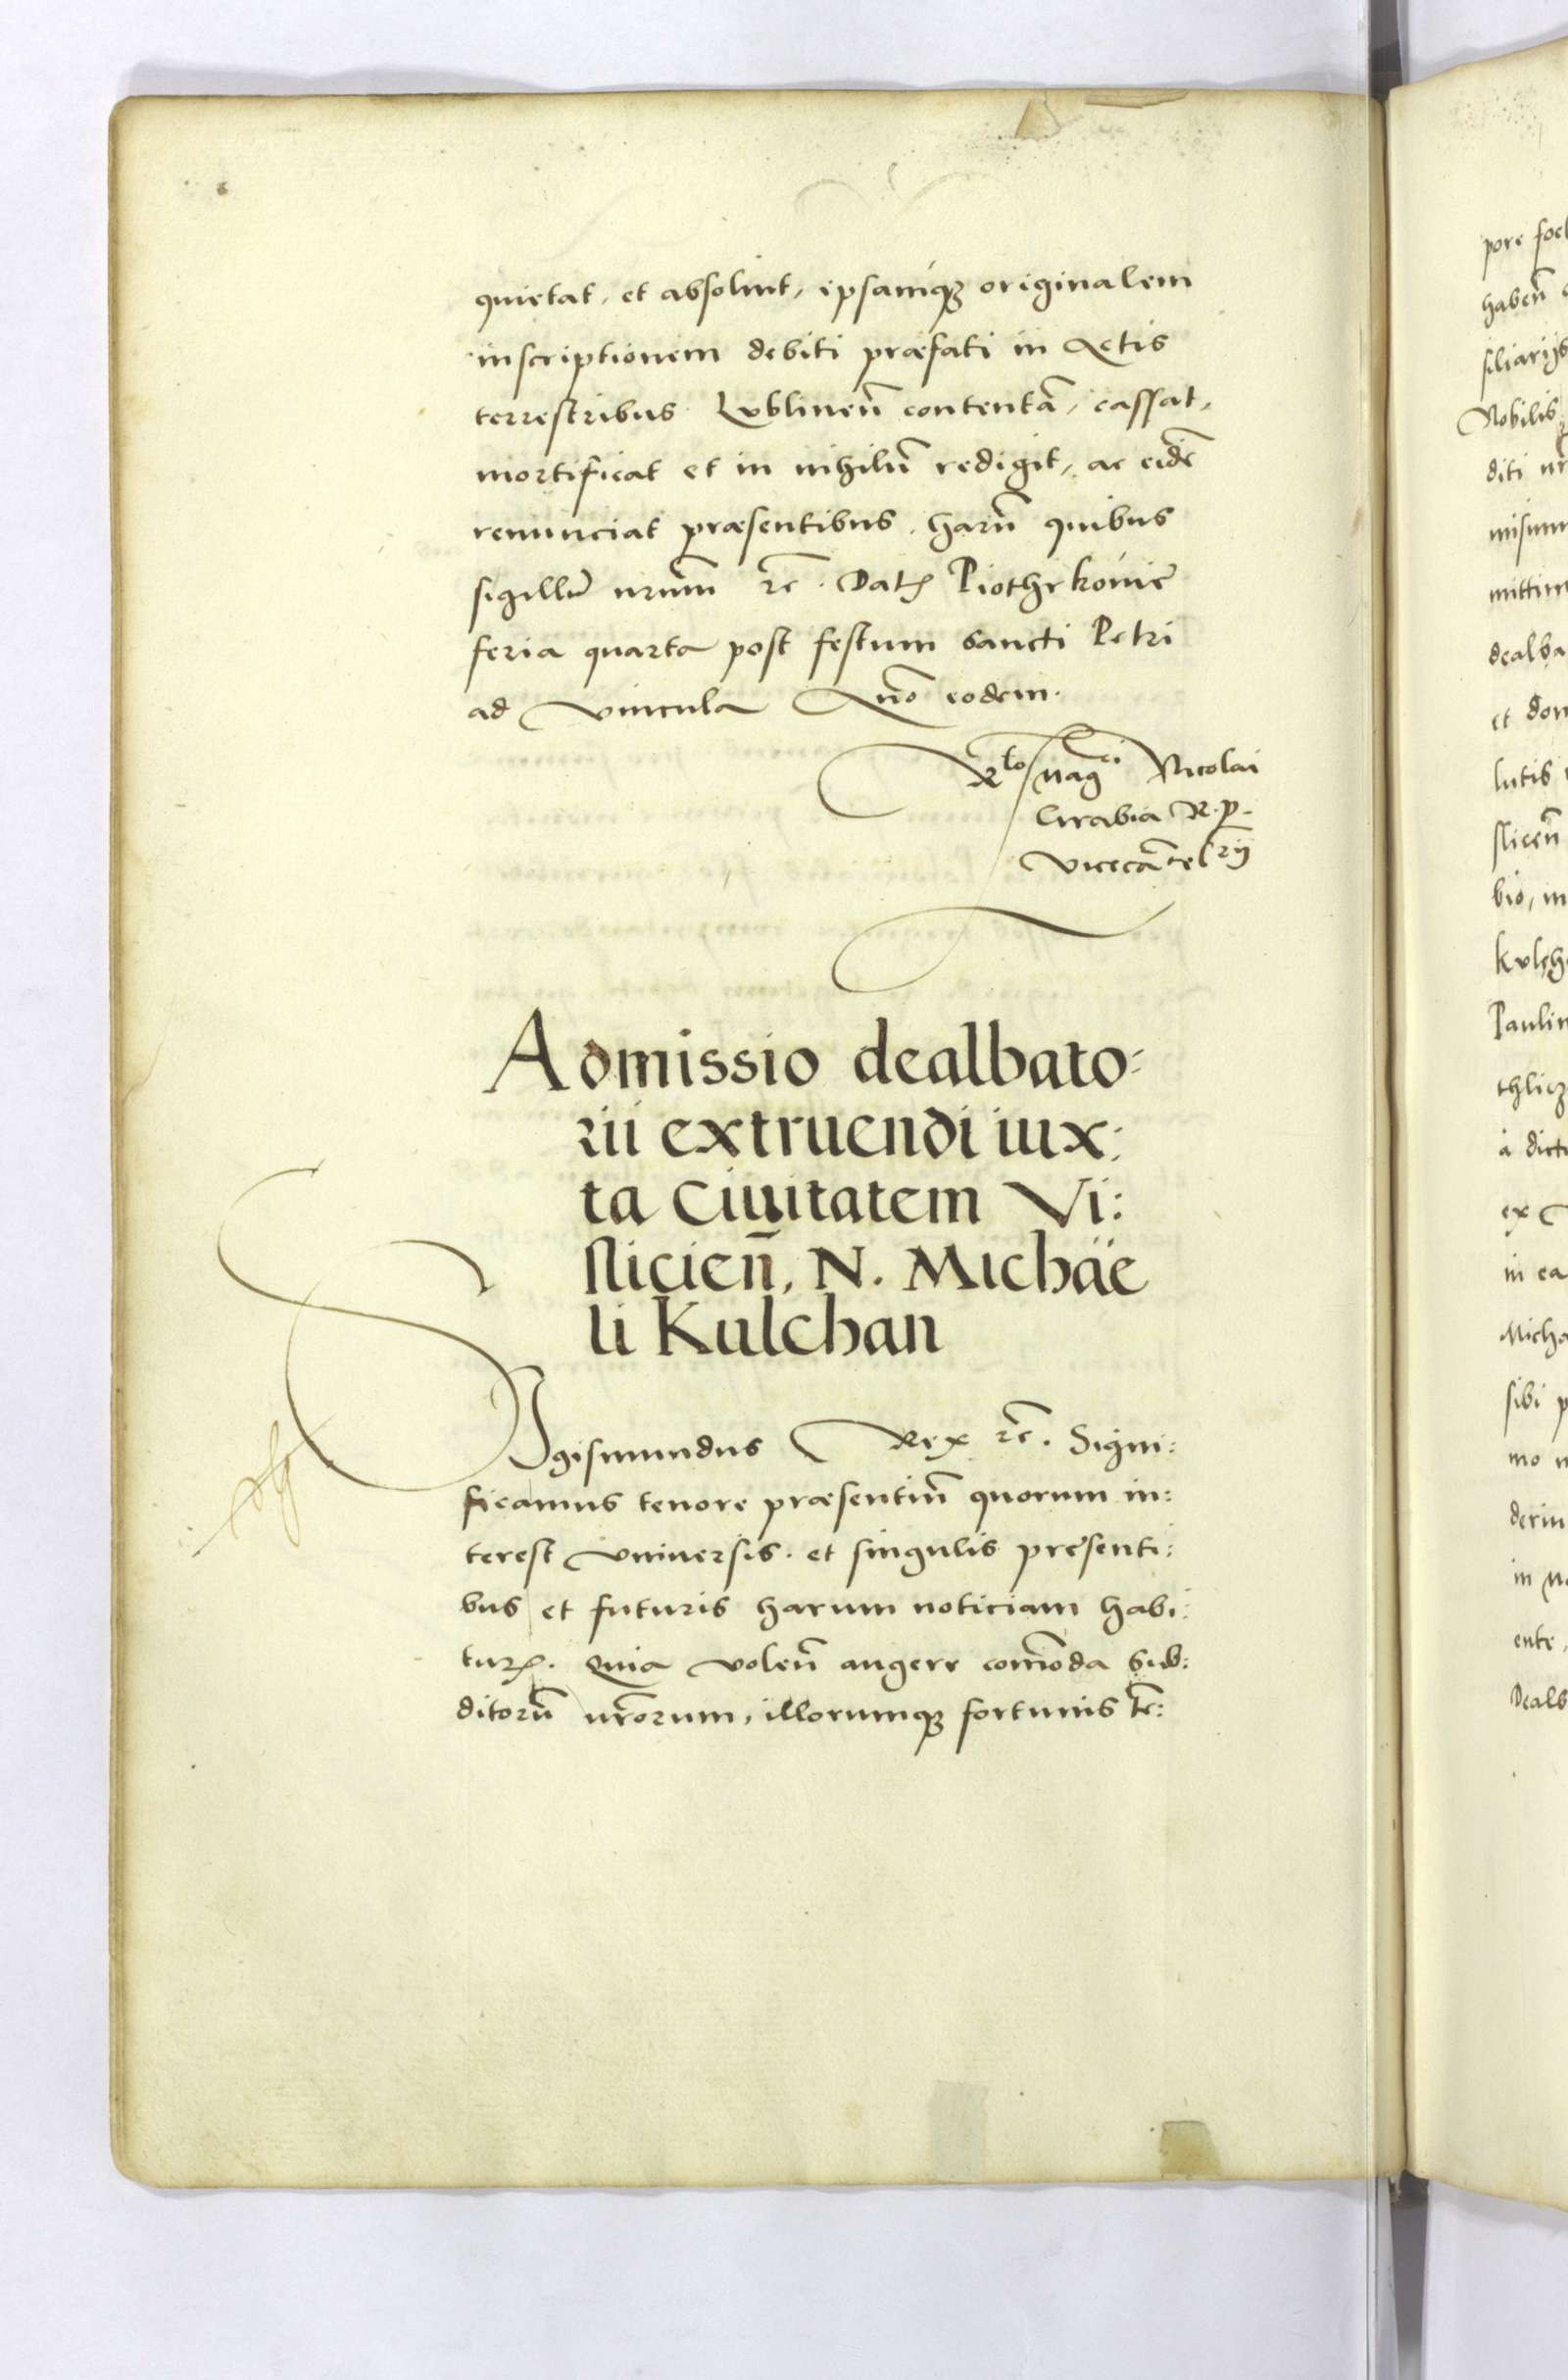 quietat, et absoluit, ipsamq3 originalem
inscriptionem debiti præfati in Actis
terrestribus Lublineñ contentã, cassat,
mortificat et in nihilũ redigit, ac eidẽ
renunciat præsentibus. harũ quibus
sigillũ nrũm ꝛc̃. Datꝭ Piothrkouiẽ
feria quarta post festum sancti Petri
ad vincula Año eodem.
Rlo magci Nicolai
Grabia R. p.
vicecãcelrij
Admissio dealbato:
rii extruendi iux:
ta Ciuitatem Vi:
sliciẽn, N. Michäe
li Kulchan
Sigismundus Rex ꝛc̃. Signi:
ficamus tenore præsentiũ quorum in:
terest vniuersis. et singulis presenti:
bus et futuris harum noticiam habi:
turꝭ. Quia voleñ augere com̃oda sub:
ditorũ nr̃orum, illorumq3 fortunis
pore foel
habeñ
siliarijs
Nobilis
diti nr
misim
mittim
dealba
et don
lutis
sliceñ
bio, in
Kulch
Paulin
thlicz
à dict
ex
in ea
Micha
sibi p
mo n
derin
in
ente,
Dealb